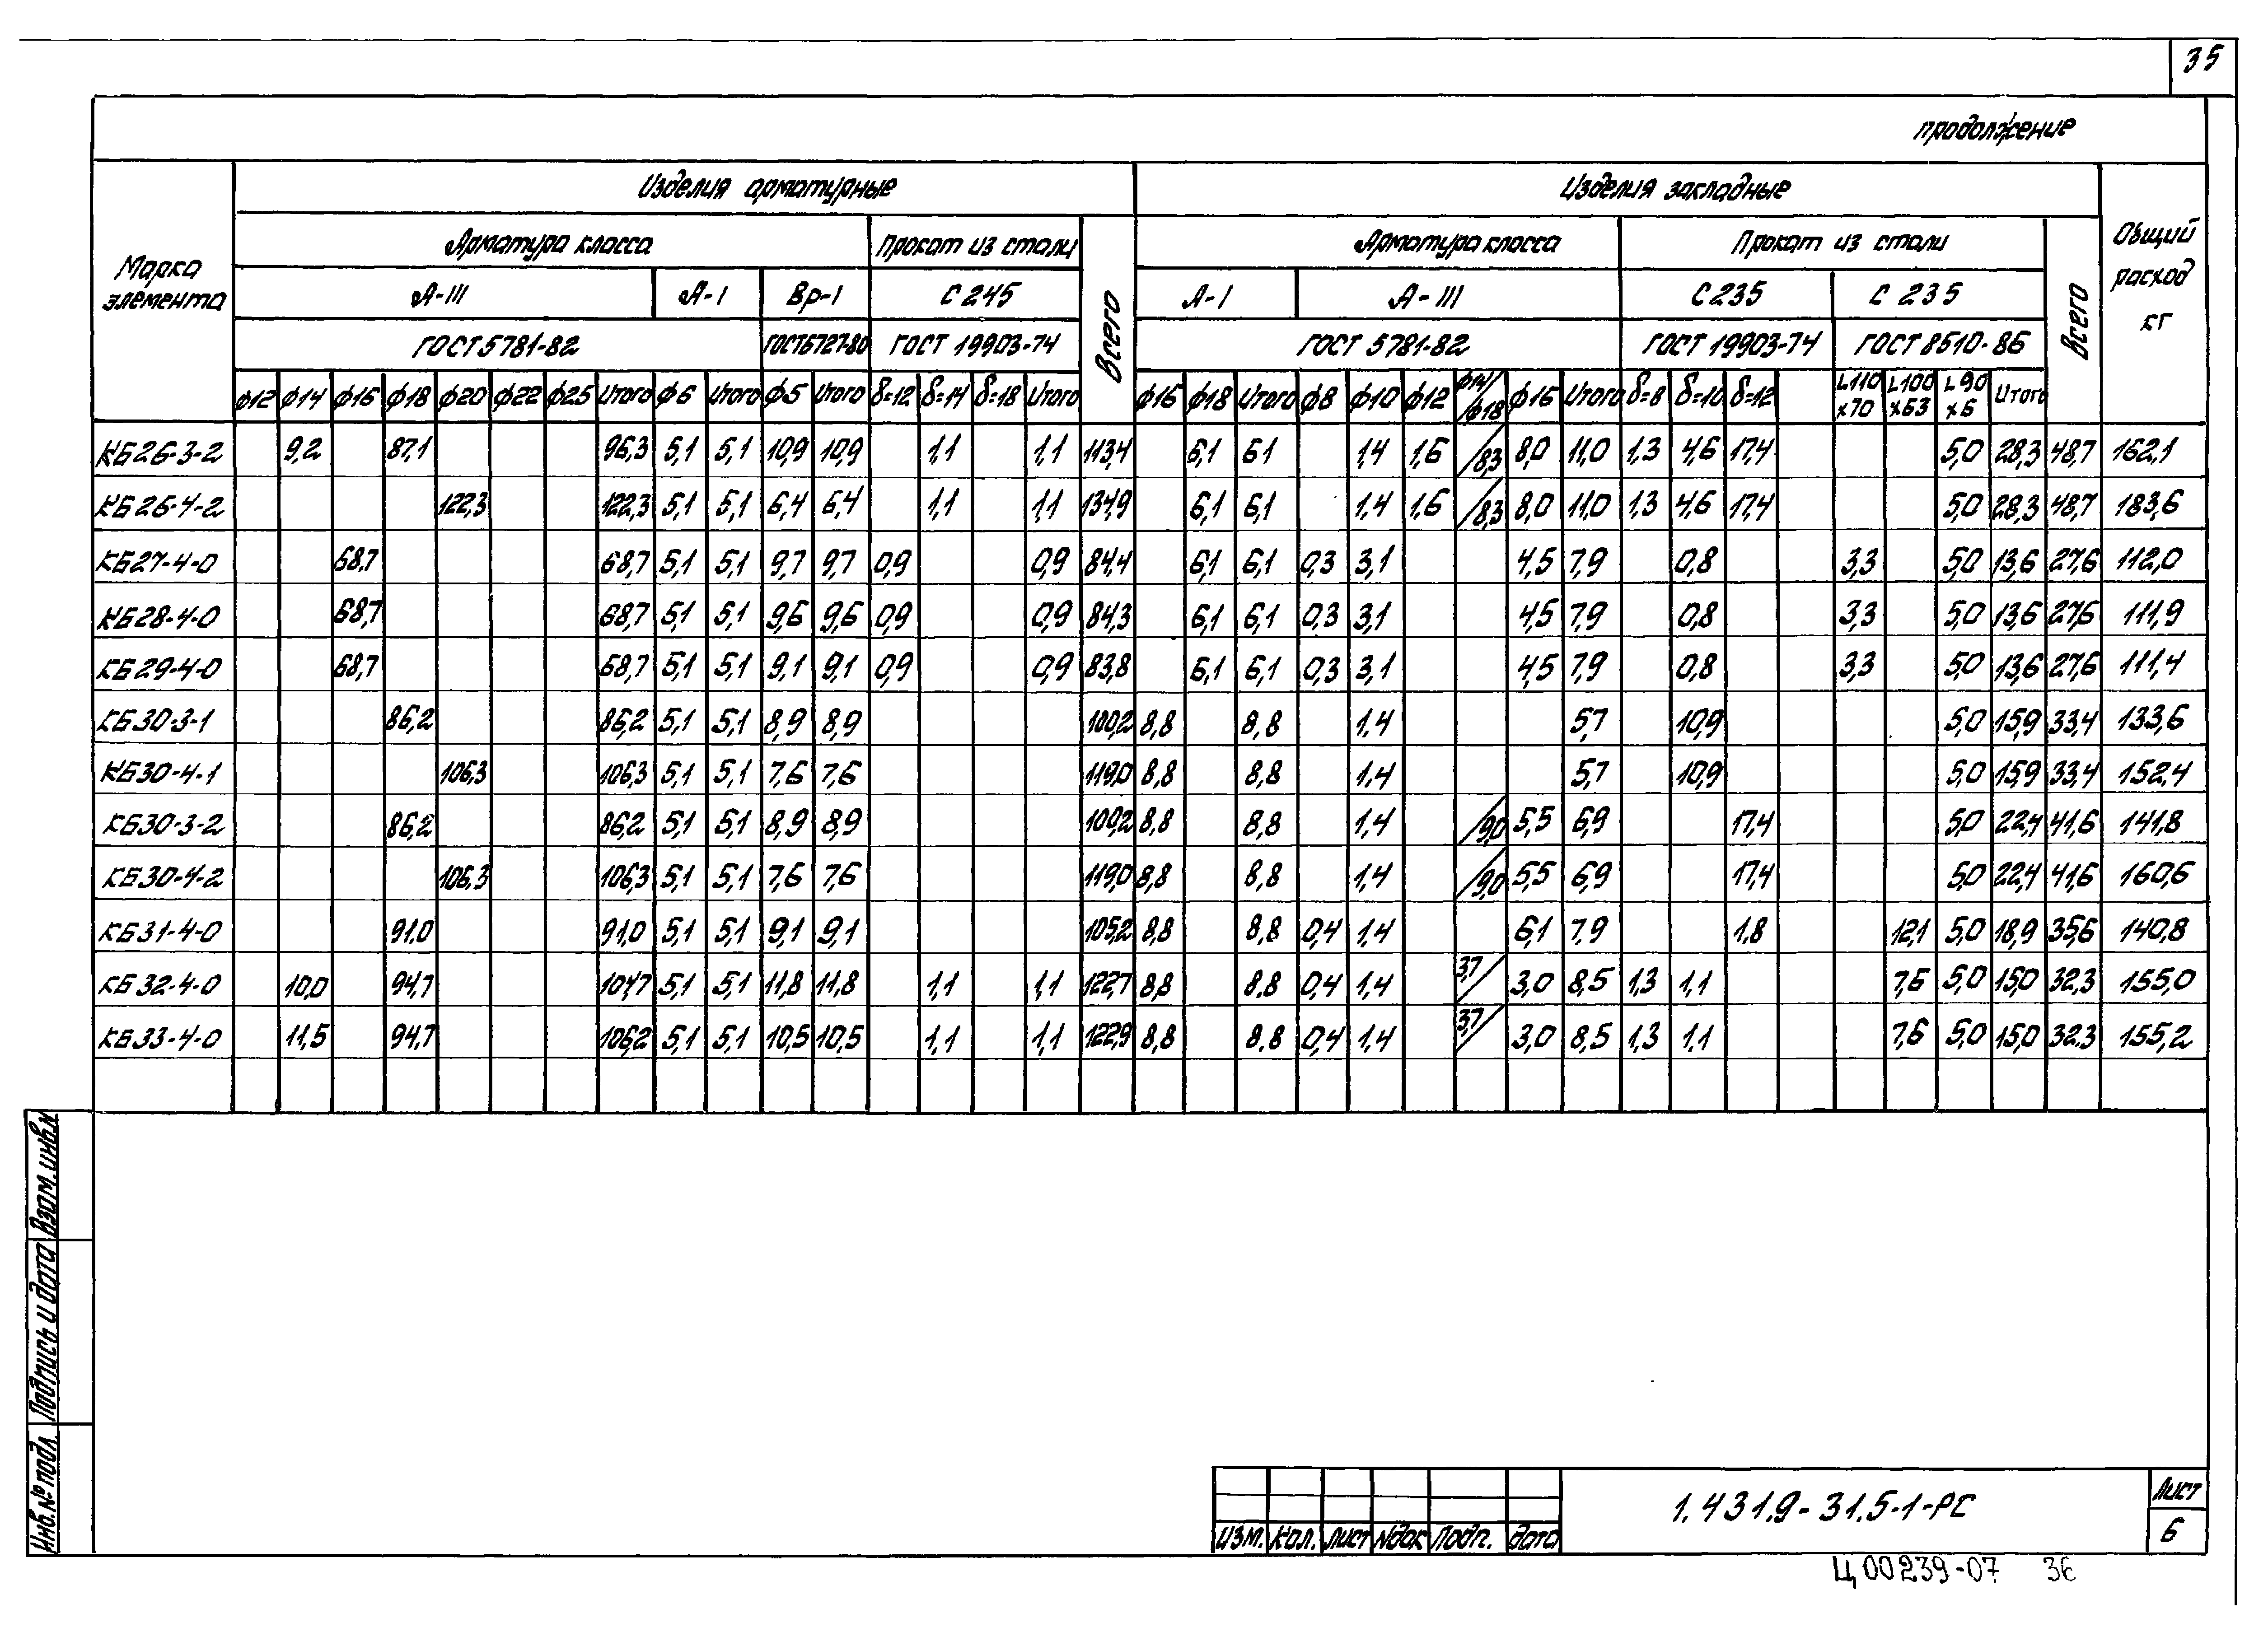 35
продолжение
Марка элемента | Изделия арматурные | Изделия закладные | Общий расход кг
Арматура класса | Прокат из стали | Всего | Арматура класса | Прокат из стали | Всего
А-III | А-I | Вр-I | С 245 | А-I | А-III | С 235 | С 235
ГОСТ 5781-82 | ГОСТ 6727-80 | ГОСТ 19903-74 | ГОСТ 5781-82 | ГОСТ 19903-74 | ГОСТ 8510-86
ф12 ф14 ф16 ф18 ф20 ф22 ф25 Итого ф6 Итого ф5 Итого δ=12 δ=14 δ=18 Итого ф16 ф18 Итого ф8 ф10 ф12 ф14/ф18 ф16 Итого δ=8 δ=10 δ=12 L110х70 L100х63 L90х6 Итого
КБ26-3-2 9,2 87,1 96,3 5,1 5,1 10,9 10,9 1.1 1.1 113,4 6,1 6.1 1,4 1,6 /8,3 8,0 11,0 1,3 4,6 17,4 5,0 28,3 48,7 162,1
КБ26-4-2 122,3 122,3 5,1 5,1 6,4 6,4 1.1 1,1 134,9 6,1 6,1 1,4 1,6 /8,3 8,0 11,0 1,3 4,6 17,4 5,0 28,3 48,7 183,6
КБ27-4-0 68,7 68,7 5,1 5,1 9,7 9,7 0,9 0,9 84,4 6,1 6,1 0,3 3,1 4,5 7,9 0,8 3,3 5,0 13,6 27,6 112,0
КБ28-4-0 68,7 68,7 5,1 5,1 9,6 9,6 0,9 0,9 84,3 6,1 6,1 0,3 3,1 4,5 7,9 0,8 3,3 5,0 13,6 27,6 111,9
КБ29-4-0 68,7 68,7 5,1 5,1 9,1 9,1 0,9 0,9 83,8 6,1 6,1 0,3 3,1 4,5 7,9 0,8 3,3 5,0 13,6 27,6 111,4
КБ30-3-1 86,2 86,2 5,1 5,1 8,9 8,9 100,2 8,8 8,8 1,4 5,7 10,9 5,0 15,9 33,4 133,6
КБ30-4-1 106,3 106,3 5,1 5,1 7,6 7,6 119,0 8,8 8,8 1,4 5,7 10,9 5,0 15,9 33,4 152,4
КБ30-3-2 86,2 86,2 5,1 5,1 8,9 8,9 100,2 8,8 8,8 1,4 /9,0 5,5 6,9 17,4 5,0 22,4 41,6 141,8
КБ30-4-2 106,3 106,3 5,1 5,1 7,6 7,6 119,0 8,8 8,8 1,4 /9,0 5,5 6,9 17,4 5,0 22,4 41,6 160,6
КБ31-4-0 91,0 91,0 5,1 5,1 9,1 9,1 105,2 8,8 8,8 0,4 1,4 6,1 7,9 1.8 12,1 5,0 18,9 35,6 140,8
КБ32-4-0 10,0 94,7 104,7 5,1 5,1 11,8 11,8 1,1 1,1 122,7 8,8 8.8 0,4 1,4 3,7/ 3,0 8,5 1,3 1,1 7,6 5,0 15,0 32,3 155,0
КБ33-4-0 11,5 94,7 106,2 5,1 5,1 10,5 10,5 1,1 1,1 122,9 8,8 8.8 0,4 1,4 3,7/ 3,0 8,5 1,3 1.1 7,6 5,0 15,0 32,3 155,2
Взам.инв.№
Подпись и дата
Инв.№ подл.
Изм. Кол. Лист Nдок Подп. Дата
1.431.9-31.5-1-РС
Лист
6
Ц00239-07 36